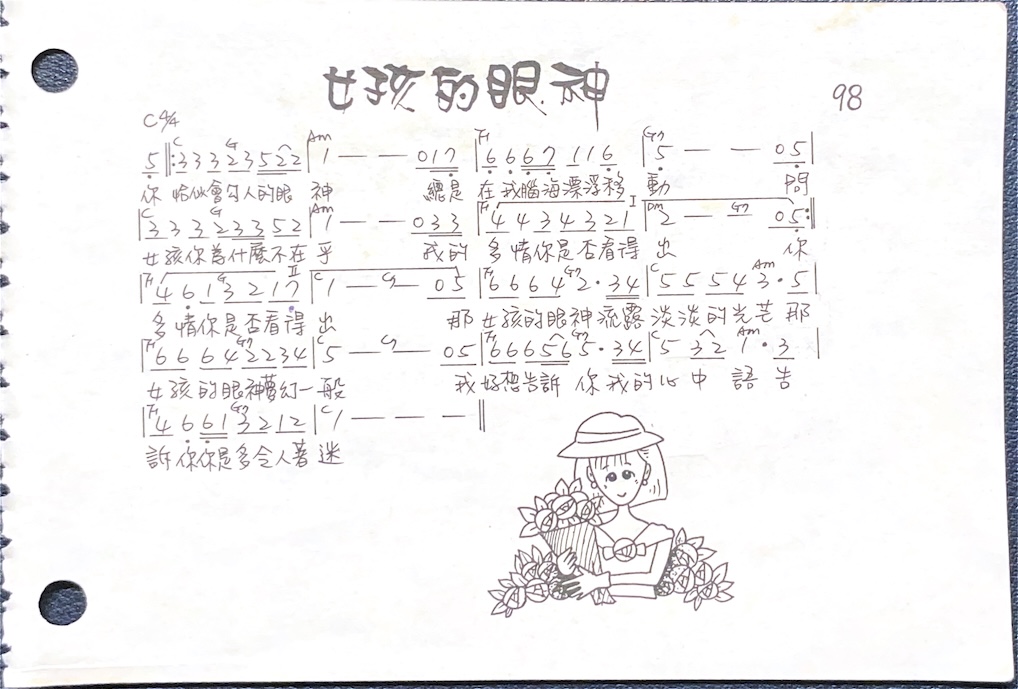 女孩的眼神
98
C 4/4
C G Am F G7
5 ‖: 3 3 3 2 3 5 2 2 | 1 — — 0 1 7 | 6 6 6 7 1 1 6 | 5 — — 0 5 |
你 恰似會勾人的眼 神 總是 在我腦海漂浮移 動 問
C G Am F I Dm G7
| 3 3 3 2 3 3 5 2 | 1 — — 0 3 3 | 4 4 3 4 3 2 1 | 2 — — 0 5 :‖
女孩你為什麼不在乎 我的 多情你是否看得 出 你
F G II C C7 F G7 C Am
| 4 6 1 3 2 1 7 | 1 — — 0 5 | 6 6 6 4 2 · 3 4 | 5 5 5 4 3 · 5 |
多情你是否看得 出 那女孩的眼神流露淡淡的光芒那
F G7 C C7 F G7 C Am
| 6 6 6 4 2 2 3 4 | 5 — — 0 5 | 6 6 6 5 6 5 · 3 4 | 5 3 2 1 · 3 |
女孩的眼神夢幻一般 我好想告訴你我的心中語告
F G7 C
| 4 6 6 1 3 2 1 2 | 1 — — — ‖
訴你你是多令人著迷